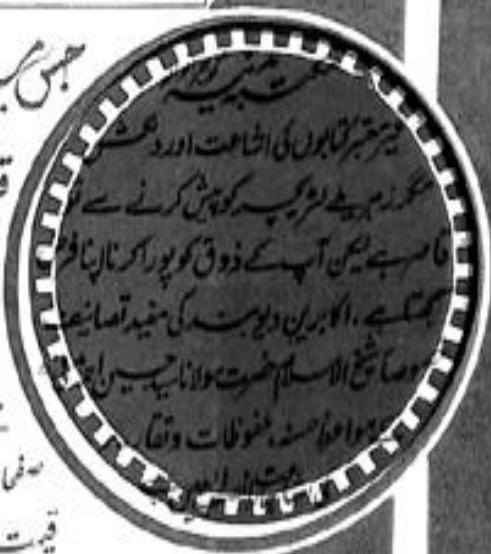 جس میں
غیر معتبر کتابوں کی اشاعت اور دلکش
مگر زہریلے لٹریچر کو پیش کرنے سے تو
قاصر ہے لیکن آپ کے ذوق کو پورا کرنا اپنا فر
سمجھتا ہے. اکابرین دیوبند کی مفید تصانیف
صوصاً شیخ الاسلام حضرت مولانا سید حسین احمد
مواعظ حسنہ، ملفوظات و تقار
صفحا
قیمت